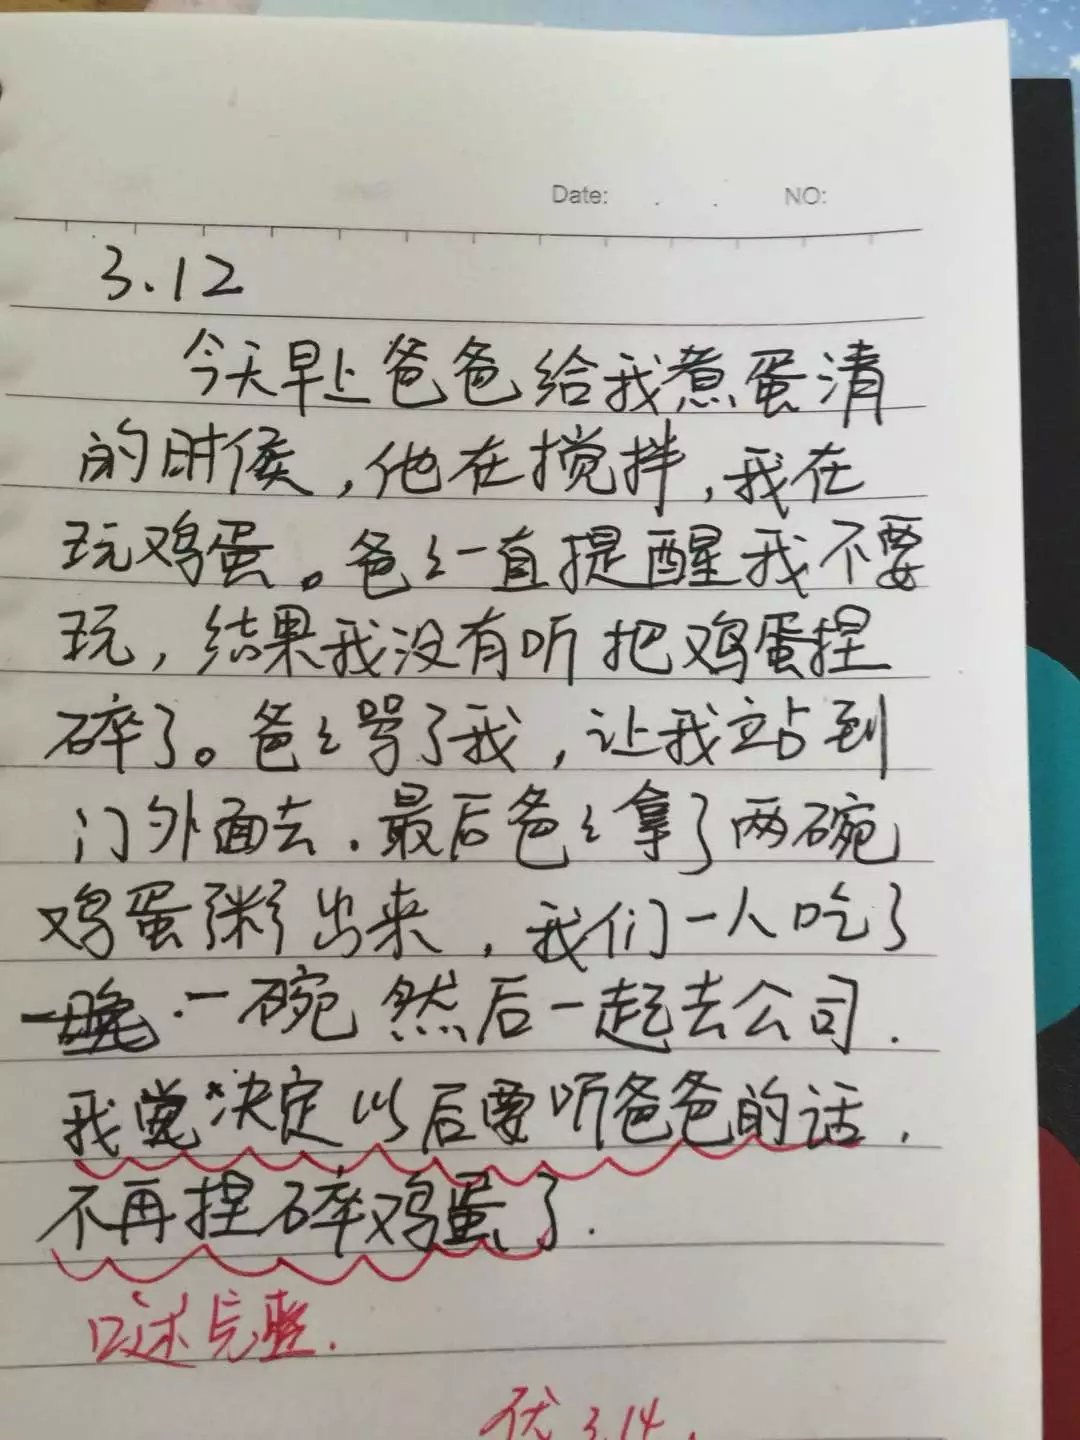 Date: . . NO:
3.12
今天早上爸爸给我煮蛋清
的时候,他在搅拌,我在
玩鸡蛋。爸々一直提醒我不要
玩,结果我没有听把鸡蛋捏
碎了。爸々骂了我,让我站到
门外面去.最后爸々拿了两碗
鸡蛋粥出来,我们一人吃了
一碗 然后一起去公司.
我觉决定以后要听爸爸的话,
不再捏碎鸡蛋了.
口述完整.
优 3.14.